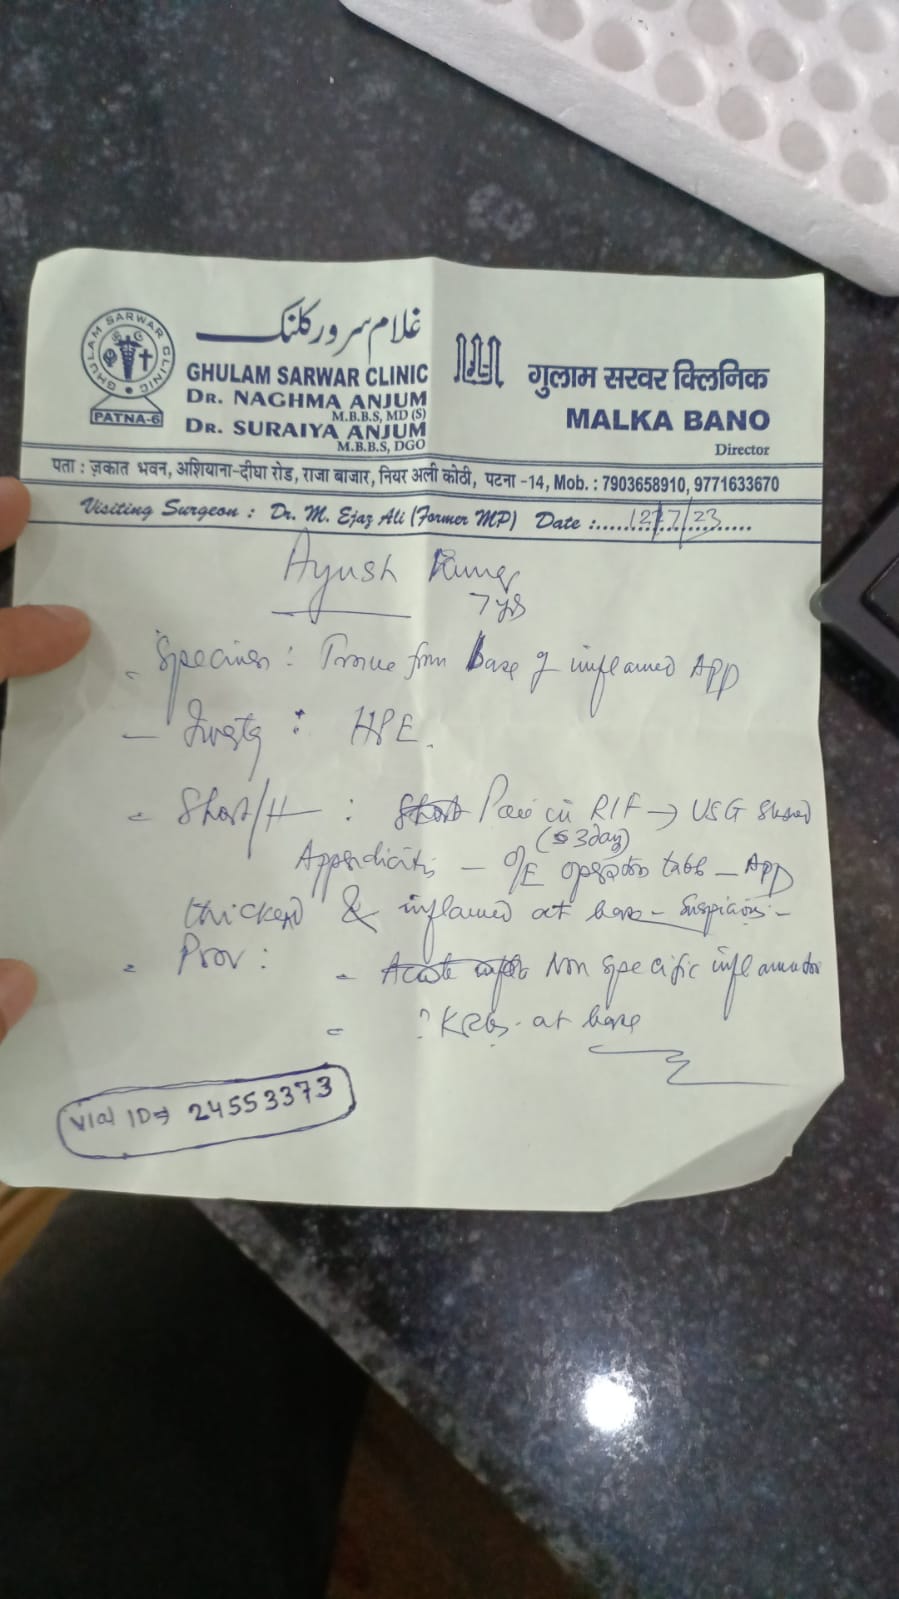 غلام سرور کلنک
GHULAM SARWAR CLINIC
DR. NAGHMA ANJUM
M.B.B.S, MD (S)
DR. SURAIYA ANJUM
M.B.B.S, DGO
GHULAM SARWAR CLINIC
PATNA-6
गुलाम सरवर क्लिनिक
MALKA BANO
Director
पता : ज़कात भवन, अशियाना-दीघा रोड, राजा बाजार, नियर अली कोठी, पटना -14, Mob. : 7903658910, 9771633670
Visiting Surgeon : Dr. M. Ejaz Ali (Former MP) Date :.....12/7/23.....
Ayush Kumar
7 yrs
- Specimen : Tissue from base of inflamed App
- : HPE.
- Short/H : Pain in RIF → USG showed
(3 days)
Appendicitis - O/E operation table - App
thickened & inflamed at base - Suspicious -
- Prov :
- Non specific inflammation
- ? at base
Vial ID ⇒ 24553373